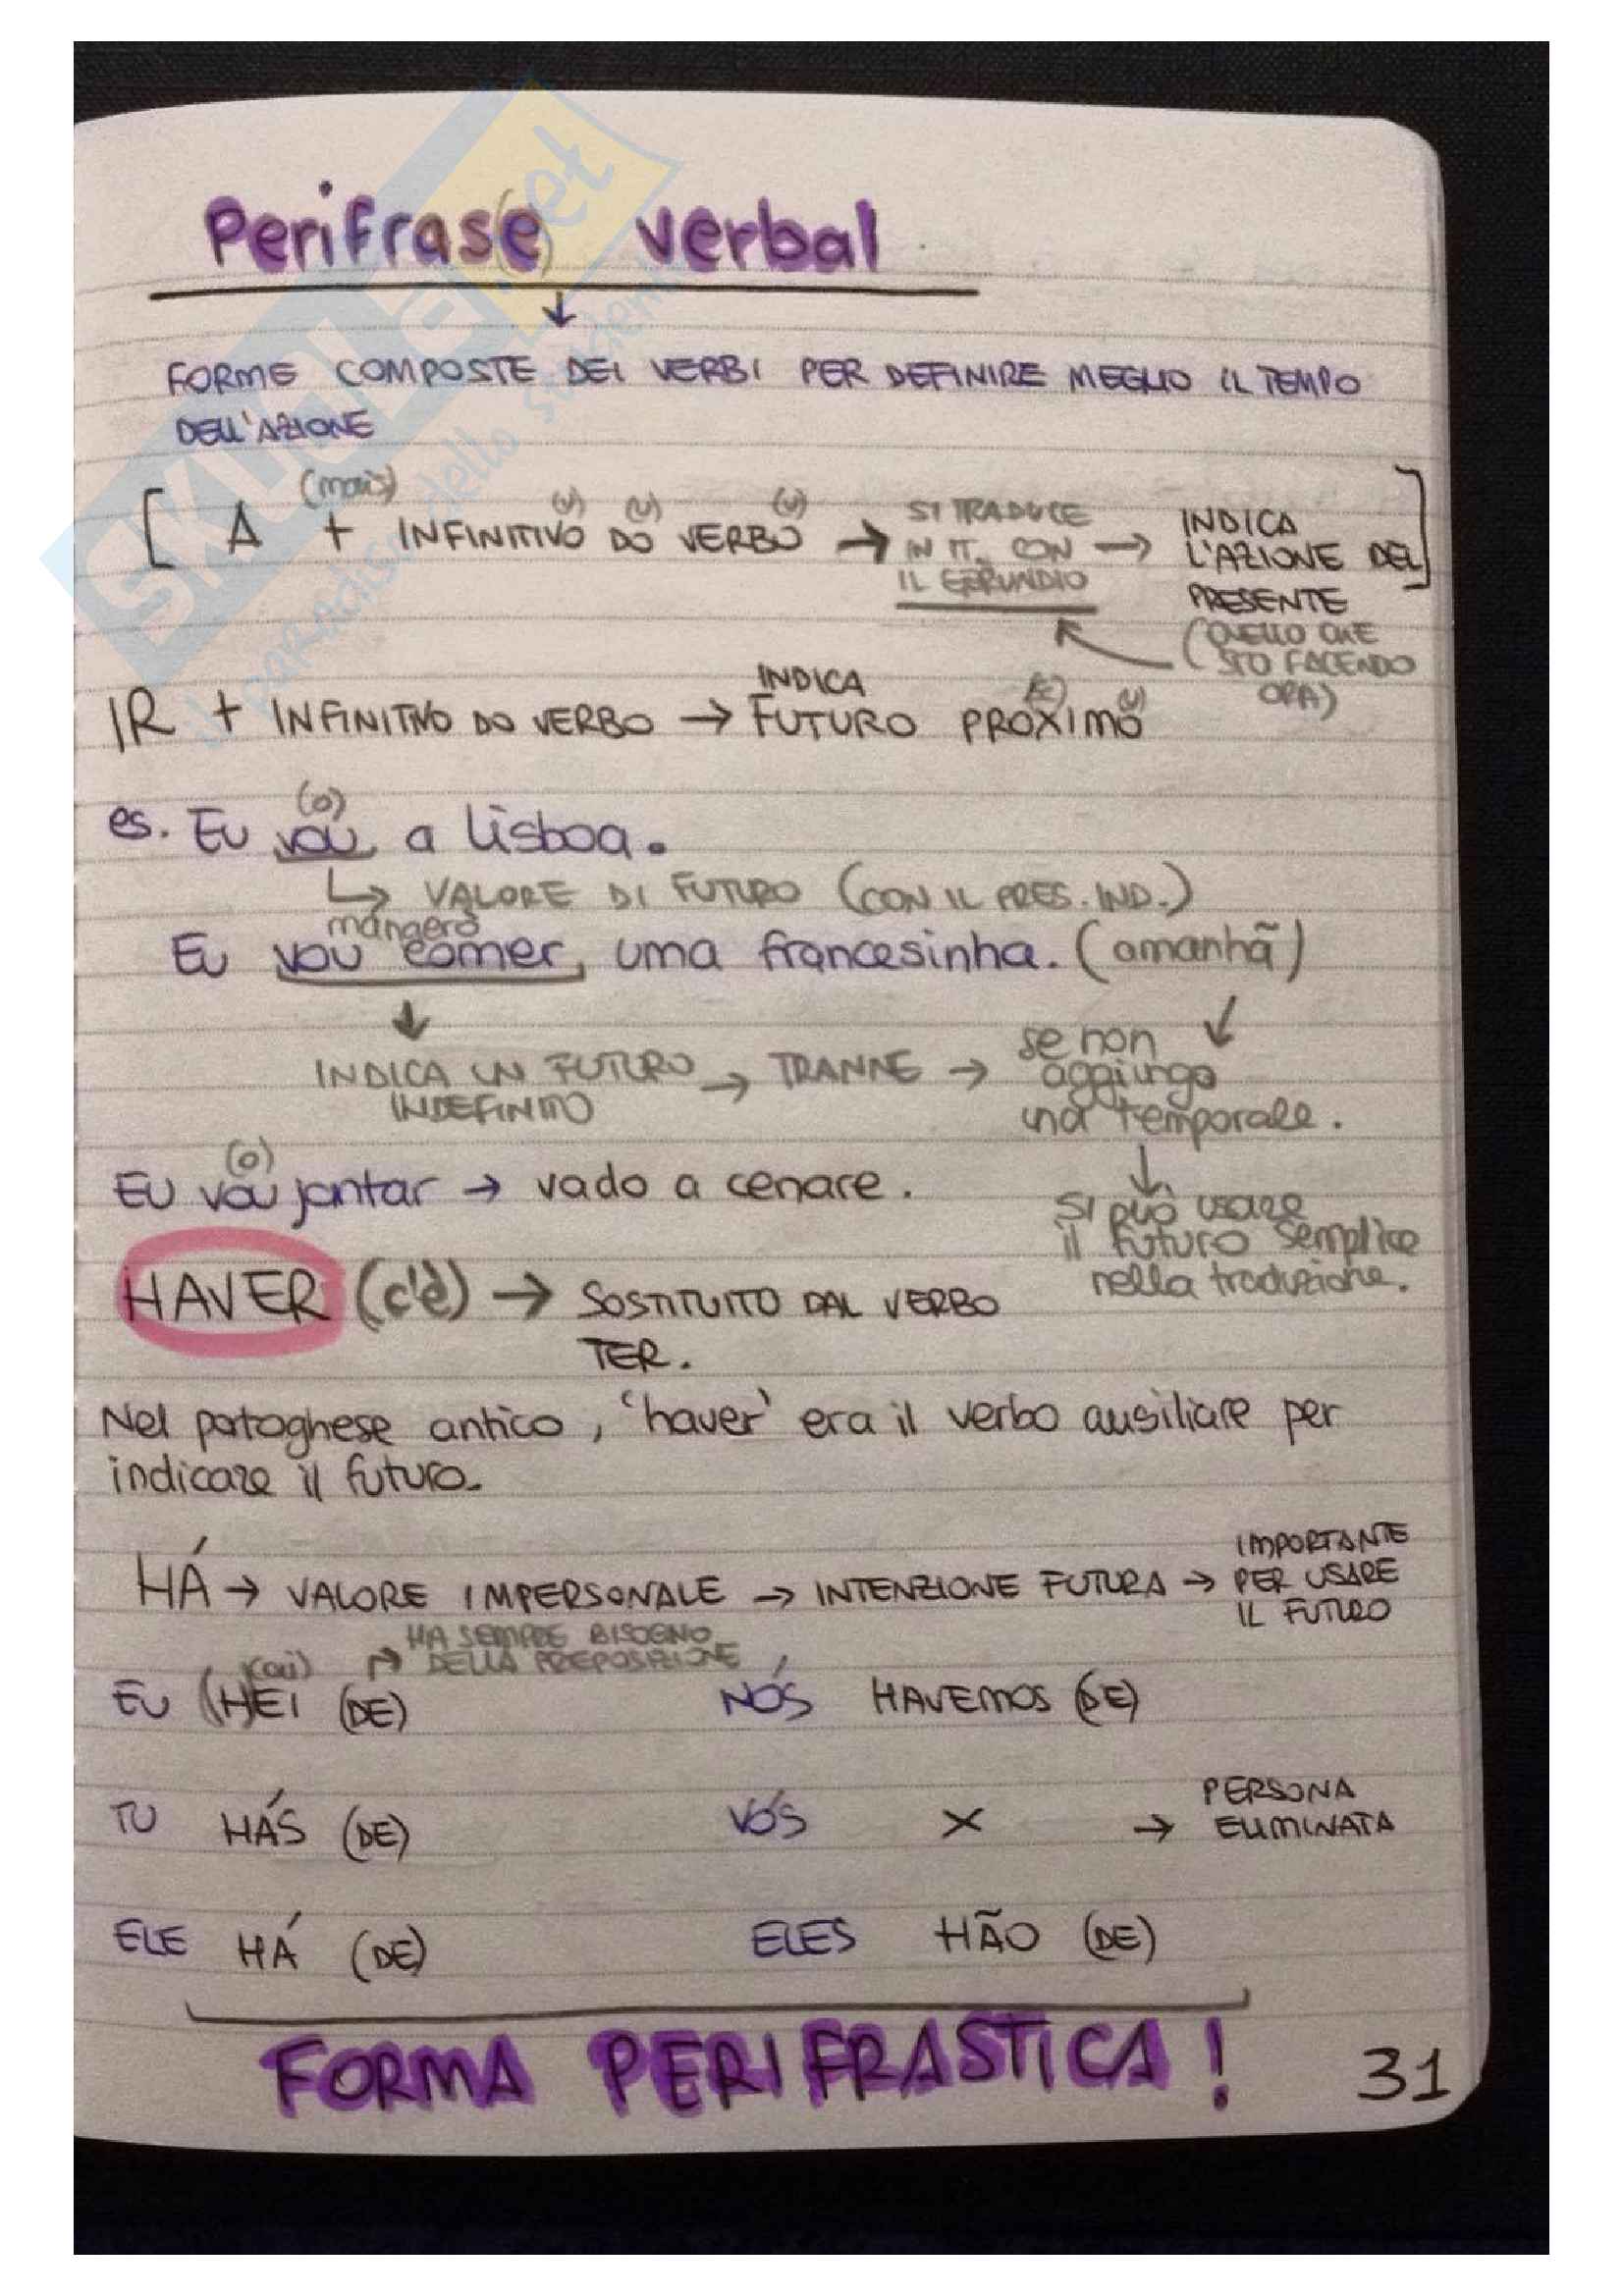 Perifrase verbal
(i)
↓
FORME COMPOSTE DEI VERBI PER DEFINIRE MEGLIO IL TEMPO
DELL'AZIONE
(mais)
[ A + INFINITIVO DO VERBO → SI TRADUCE IN IT. CON IL GERUNDIO → INDICA L'AZIONE DEL PRESENTE ]
(u) (u) (u)
(QUELLO CHE
STO FACENDO
ORA)
IR + INFINITIVO DO VERBO → INDICA FUTURO PROXIMO
(u)
(o)
es. Eu vou a Lisboa.
↳ VALORE DI FUTURO (CON IL PRES. IND.)
mangerò
Eu vou comer uma francesinha. (amanhã)
↓ ↙
INDICA UN FUTURO INDEFINITO → TRANNE → se non aggiungo una temporale.
↓
si può usare
il futuro semplice
nella traduzione.
(o)
EU vou jantar → vado a cenare.
HAVER (c'è) → SOSTITUITO DAL VERBO
TER.
Nel portoghese antico, 'haver' era il verbo ausiliare per
indicare il futuro.
HÁ → VALORE IMPERSONALE → INTENZIONE FUTURA → IMPORTANTE PER USARE IL FUTURO
HA SEMPRE BISOGNO
DELLA PREPOSIZIONE
(ai)
EU (H)EI (DE) NÓS HAVEMOS (DE)
TU HÁS (DE) VÓS X → PERSONA ELIMINATA
ELE HÁ (DE) ELES HÃO (DE)
FORMA PERIFRASTICA!
31
SKUOLA.net
il paradiso dello studente